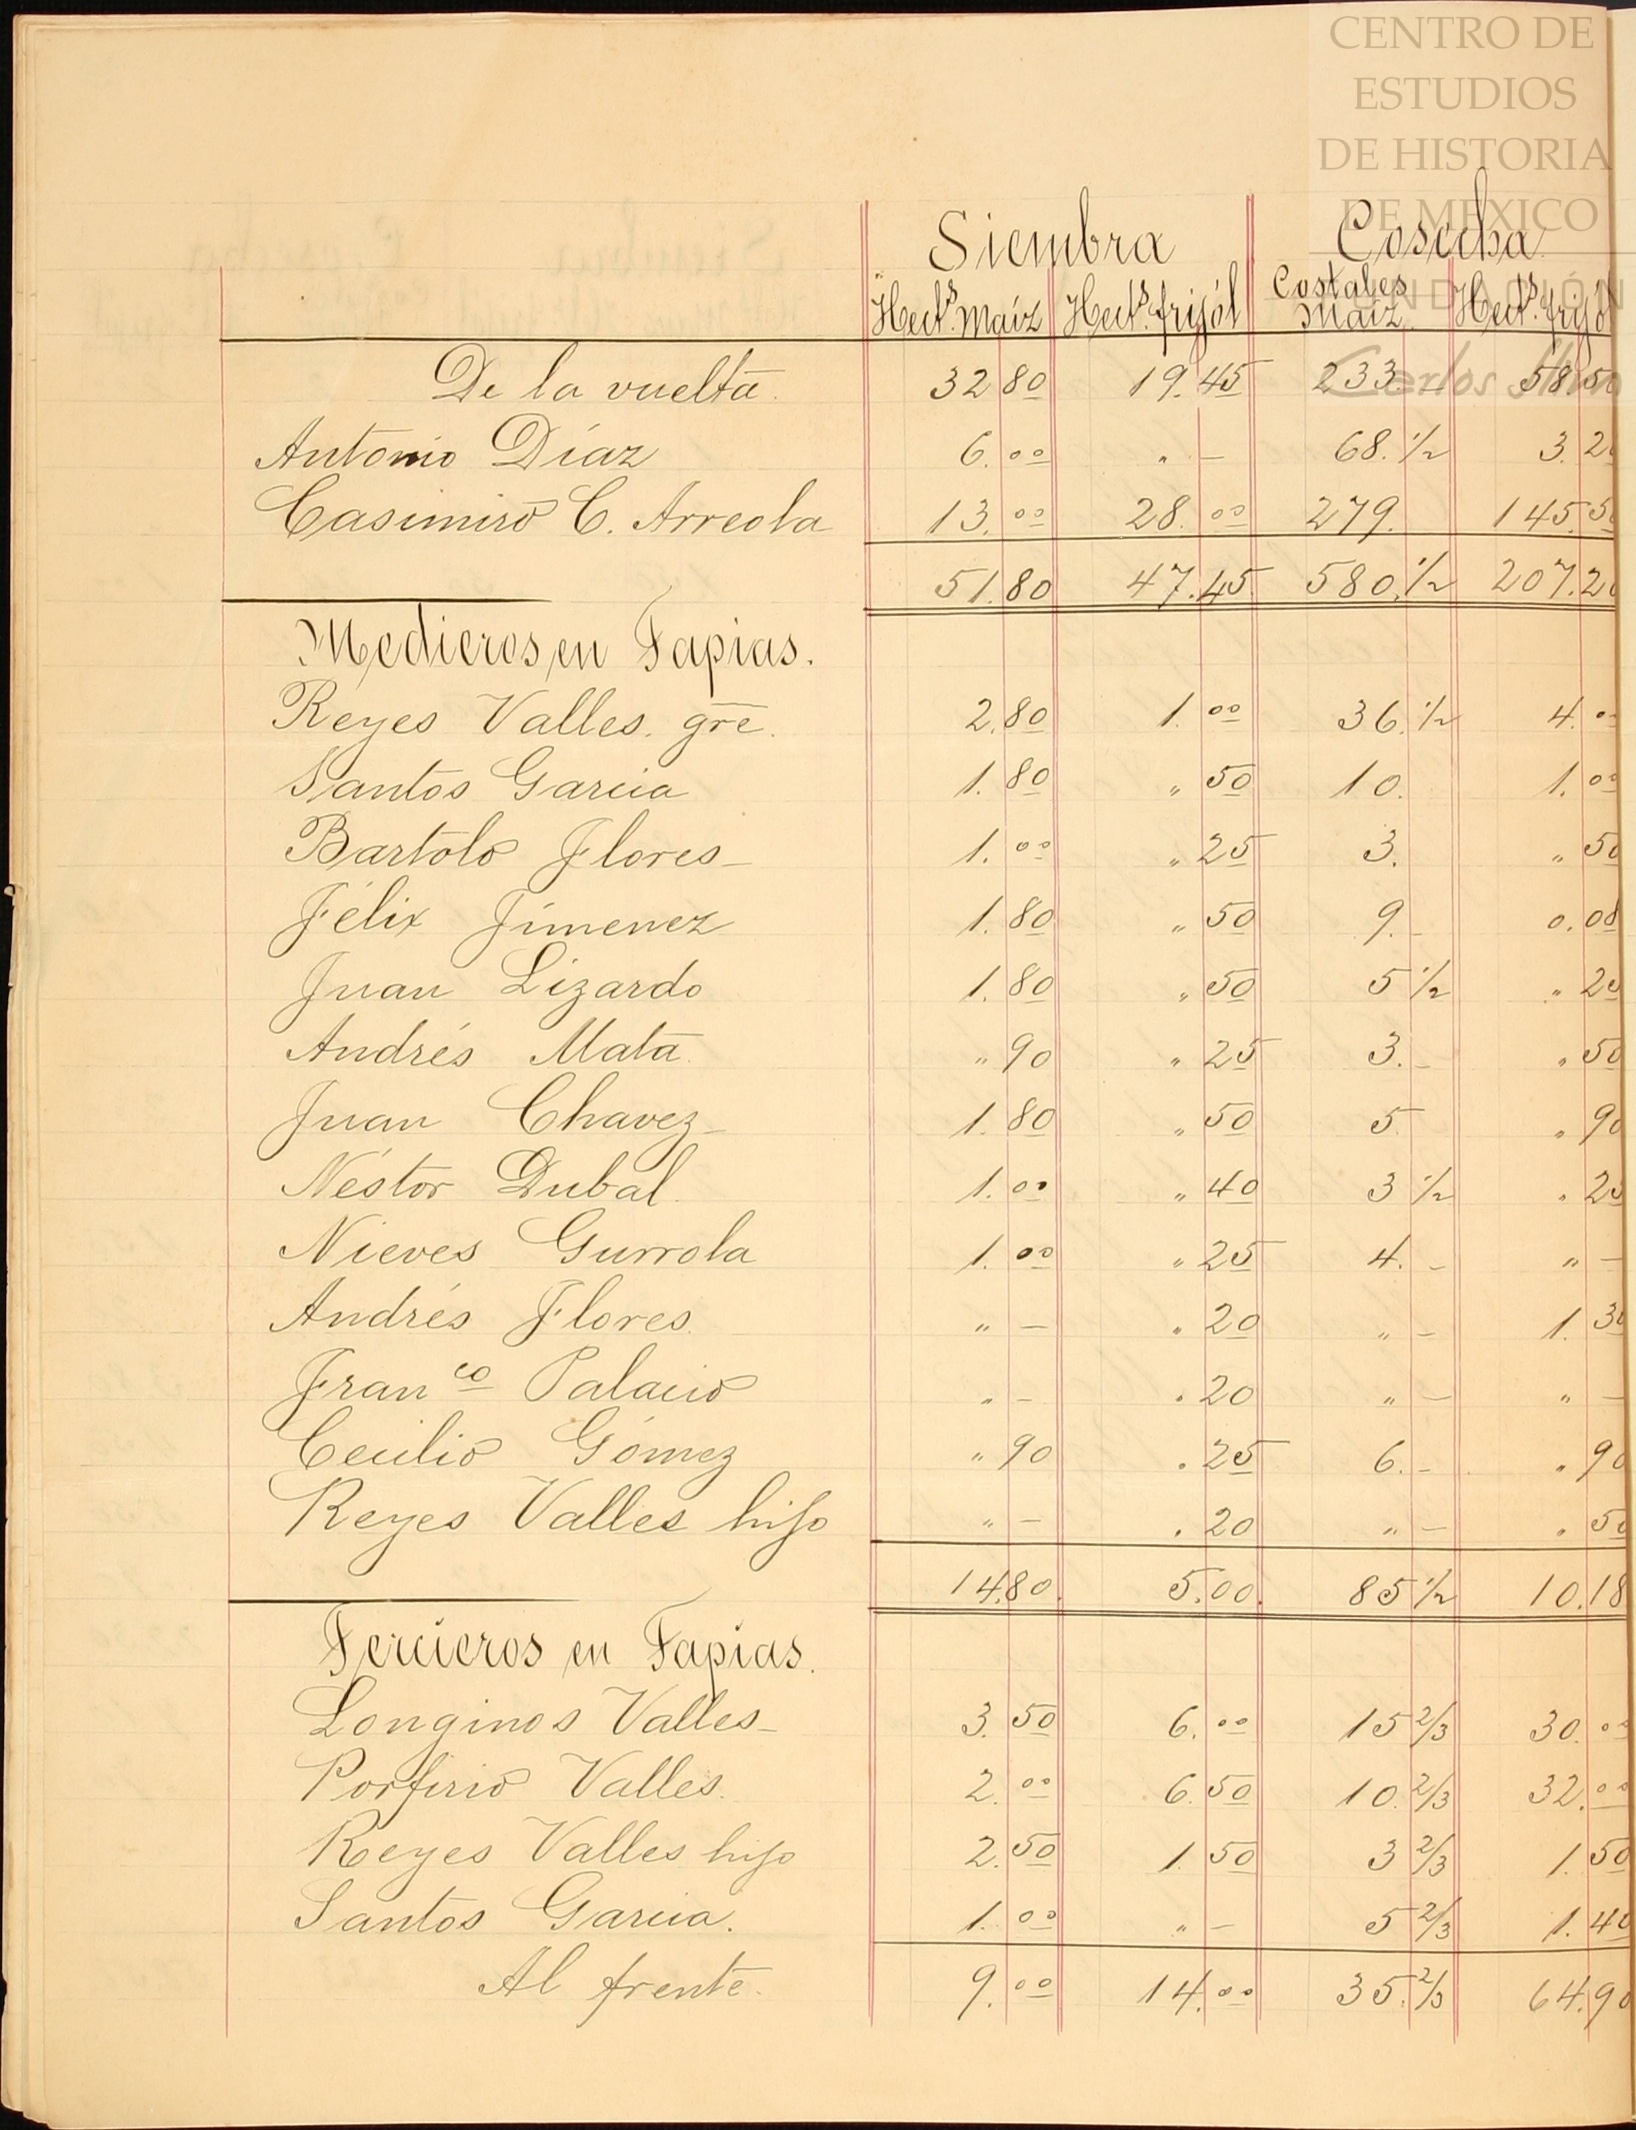 CENTRO DE
ESTUDIOS
DE HISTORIA
DE MÉXICO
FUNDACIÓN
Carlos Slim
Siembra Cosecha
Hects. Maíz Hects. frijól Costales Maíz Hects. frijól
De la vuelta. 32 80 19.45 233. 58.50
Antonio Díaz 6.00 " — 68.1/2 3.20
Casimiro C. Arreola 13.00 28.00 279. 145.50
51.80 47.45 580.1/2 207.20
Medieros en Tapias.
Reyes Valles. gre. 2.80 1.00 36.1/2 4.00
Santos Garcia 1.80 " 50 10. 1.00
Bartolo Flores — 1.00 " 25 3. " 50
Félix Jímenez 1.80 " 50 9. - 0.08
Juan Lizardo 1.80 " 50 5 1/2 " 20
Andrés Mata. " 90 " 25 3. - " 50
Juan Chavez — 1.80 " 50 5 " 90
Néstor Dubal. 1.00 " 40 3 1/2 " 20
Nieves Gurrola 1.00 " 25 4. - " —
Andrés Flores. " — " 20 " — 1.30
Franco Palacio " — " 20 " — " —
Cecilio Gómez " 90 " 25 6. - " 90
Reyes Valles hijo " — " 20 " — " 50
14.80. 5.00. 85 1/2 10.18
Tercieros en Tapias.
Longinos Valles — 3.50 6.00 15 2/3 30.00
Porfirio Valles. 2.00 6.50 10.2/3 32.00
Reyes Valles hijo 2.50 1.50 3 2/3 1.50
Santos Garcia. 1.00 " — 5 2/3 1.40
Al frente. 9.00 14.00 35.2/3 64.90